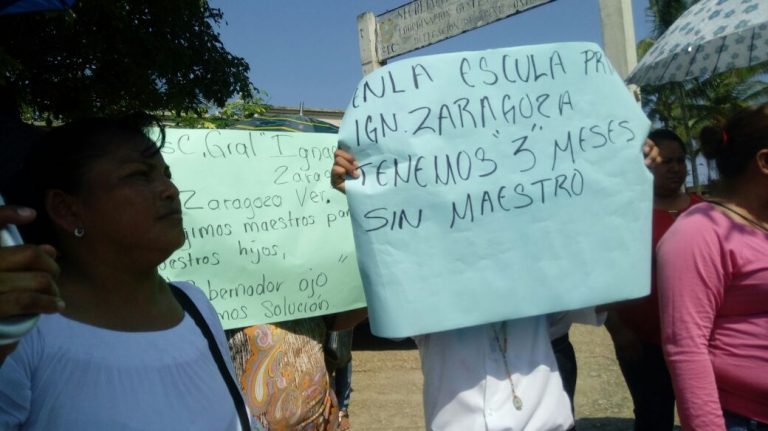 EN LA ESCULA PRI
IGN. ZARAGOZA
TENEMOS "3" MESES
SIN MAESTRO
sC. Gral "Ignac
Zarag
Zaragoza Ver.
gimos maestros par
estros hijos,
bernador ojo
mos Solución